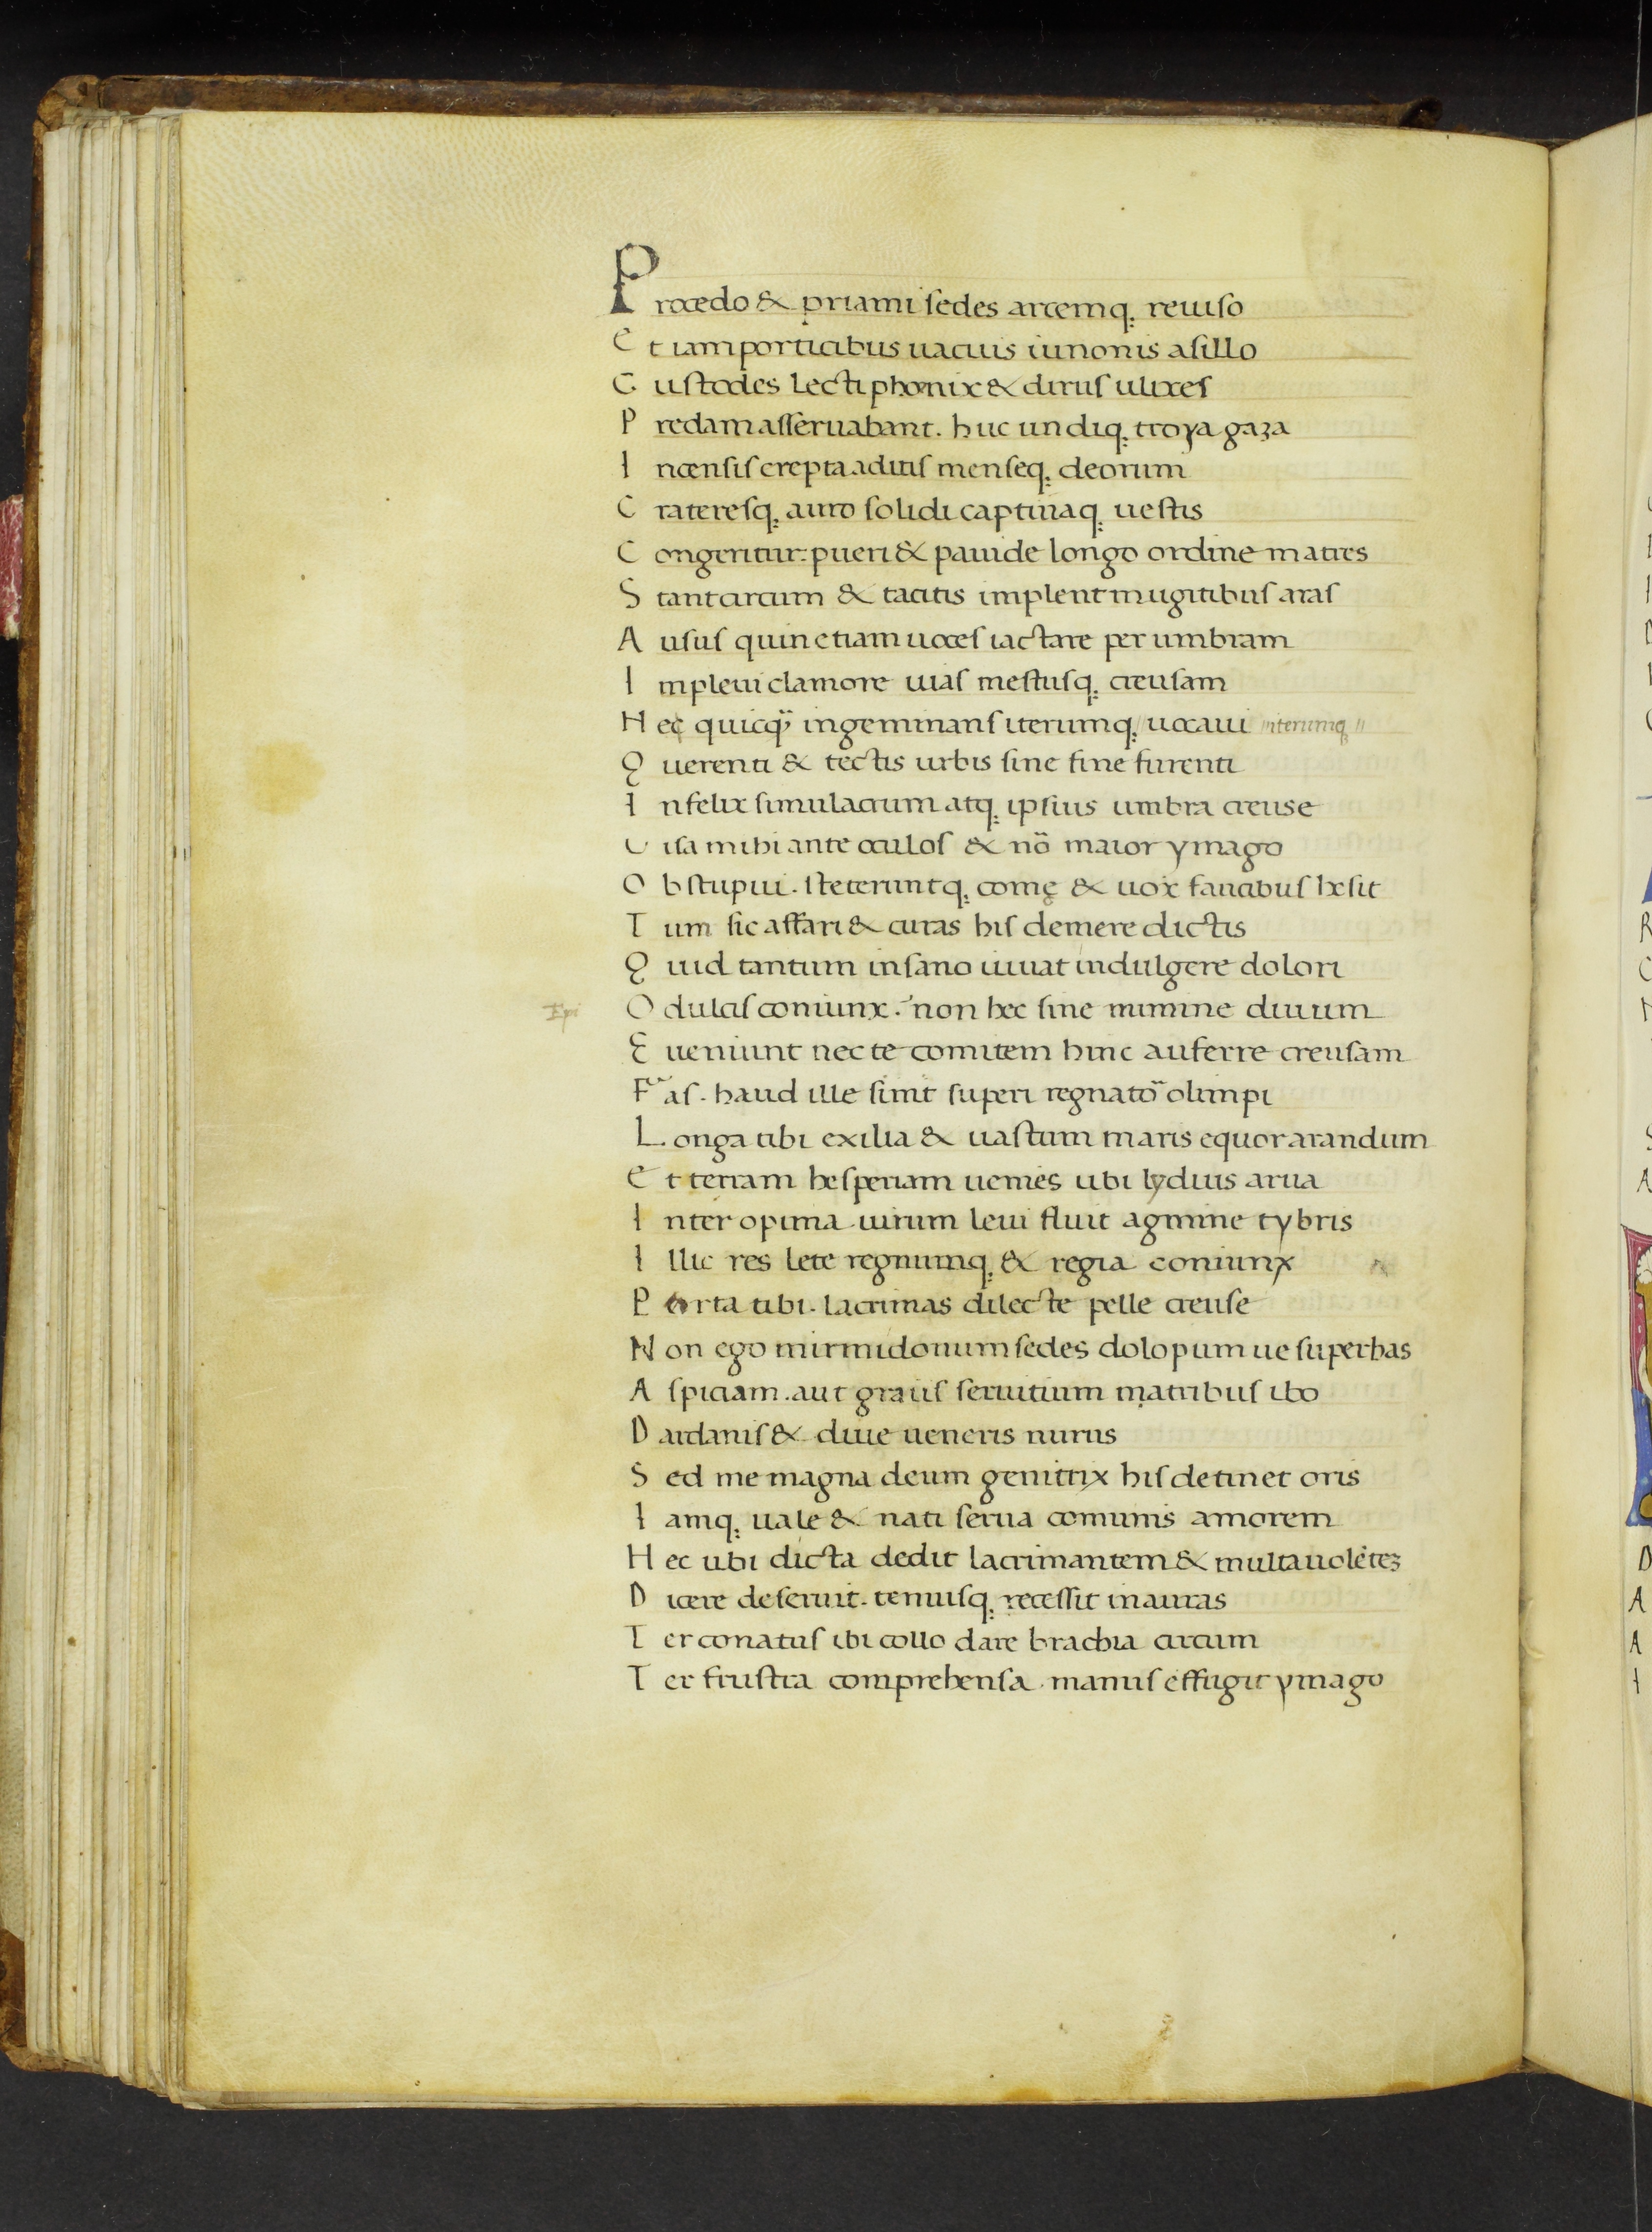 Procedo & priami sedes arcemq; reuiso
Et iam porticibus uacuis iunonis asillo
Custodes lecti phoenix & dirus ulixes
Predam asseruabant. huc undiq; troya gaza
Incensis erepta aditis menseq; deorum
Crateresq; auro solidi captiuaq; uestis
Congeritur: pueri & pauide longo ordine matres
Stant circum & tacitis implent mugitibus aras
Ausus quin etiam uoces iactare per umbram
Impleui clamore uias mestusq; creusam
Nec quicq̃ ingeminans iterumq; uocaui iterumq;
Querenti & tectis urbis sine fine furenti
Infelix simulacrum atq; ipsius umbra creuse
Uisa mihi ante oculos & nõ maior ymago
Obstupui. steteruntq; comę & uox faucibus hesit
Tum sic affari & curas his demere dictis
Quid tantum insano iuuat indulgere dolori
Epi O dulcis coniunx. non hec sine numine diuum
Eueniunt nec te comitem hinc auferre creusam
Fas. haud ille sinit superi regnatõ olimpi
Longa tibi exilia & uastum maris equor arandum
Et terram hesperiam uenies ubi lydius arua
Inter opima uirum leui fluit agmine tybris
Illic res lete regnumq; & regia coniunx
Parta tibi. lacrimas dilecte pelle creuse
Non ego mirmidonum sedes dolopum ue superbas
Aspiciam. aut graiis seruitium matribus ibo
Dardanis & diue ueneris nurus
Sed me magna deum genitrix his detinet oris
Iamq; uale & nati serua comunis amorem
Hec ubi dicta dedit lacrimantem & multa uolẽtez
Dicere deseruit. tenuisq; recessit in auras
Ter conatus ibi collo dare brachia circum
Ter frustra comprehensa manus effugit ymago